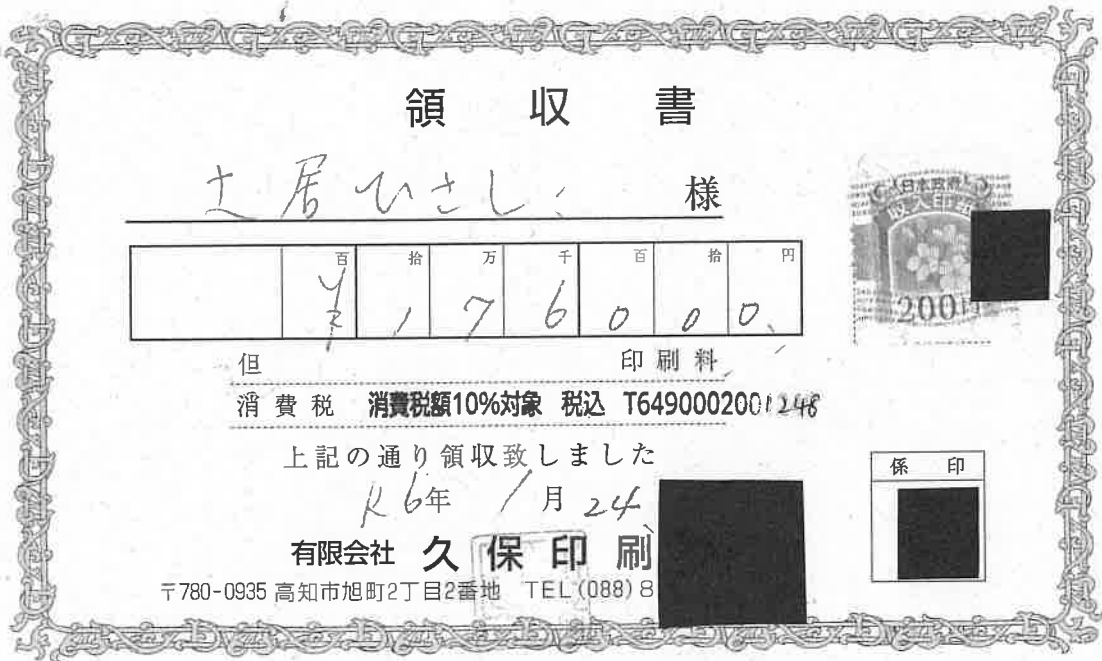 領収書
土居ひさし 様
日本政府
収入印紙
200円
百 拾 万 千 百 拾 円
¥ 1 7 6 0 0 0
但 印刷料
消費税 消費税額10%対象 税込 T6490002001248
上記の通り領収致しました
R6年 1月 24
係印
有限会社 久保印刷
〒780-0935 高知市旭町2丁目2番地 TEL(088)8